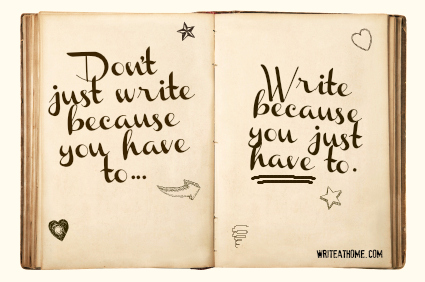 Don't
just write
because
you have
to...
Write
because
you just
have to.
WRITEATHOME.COM